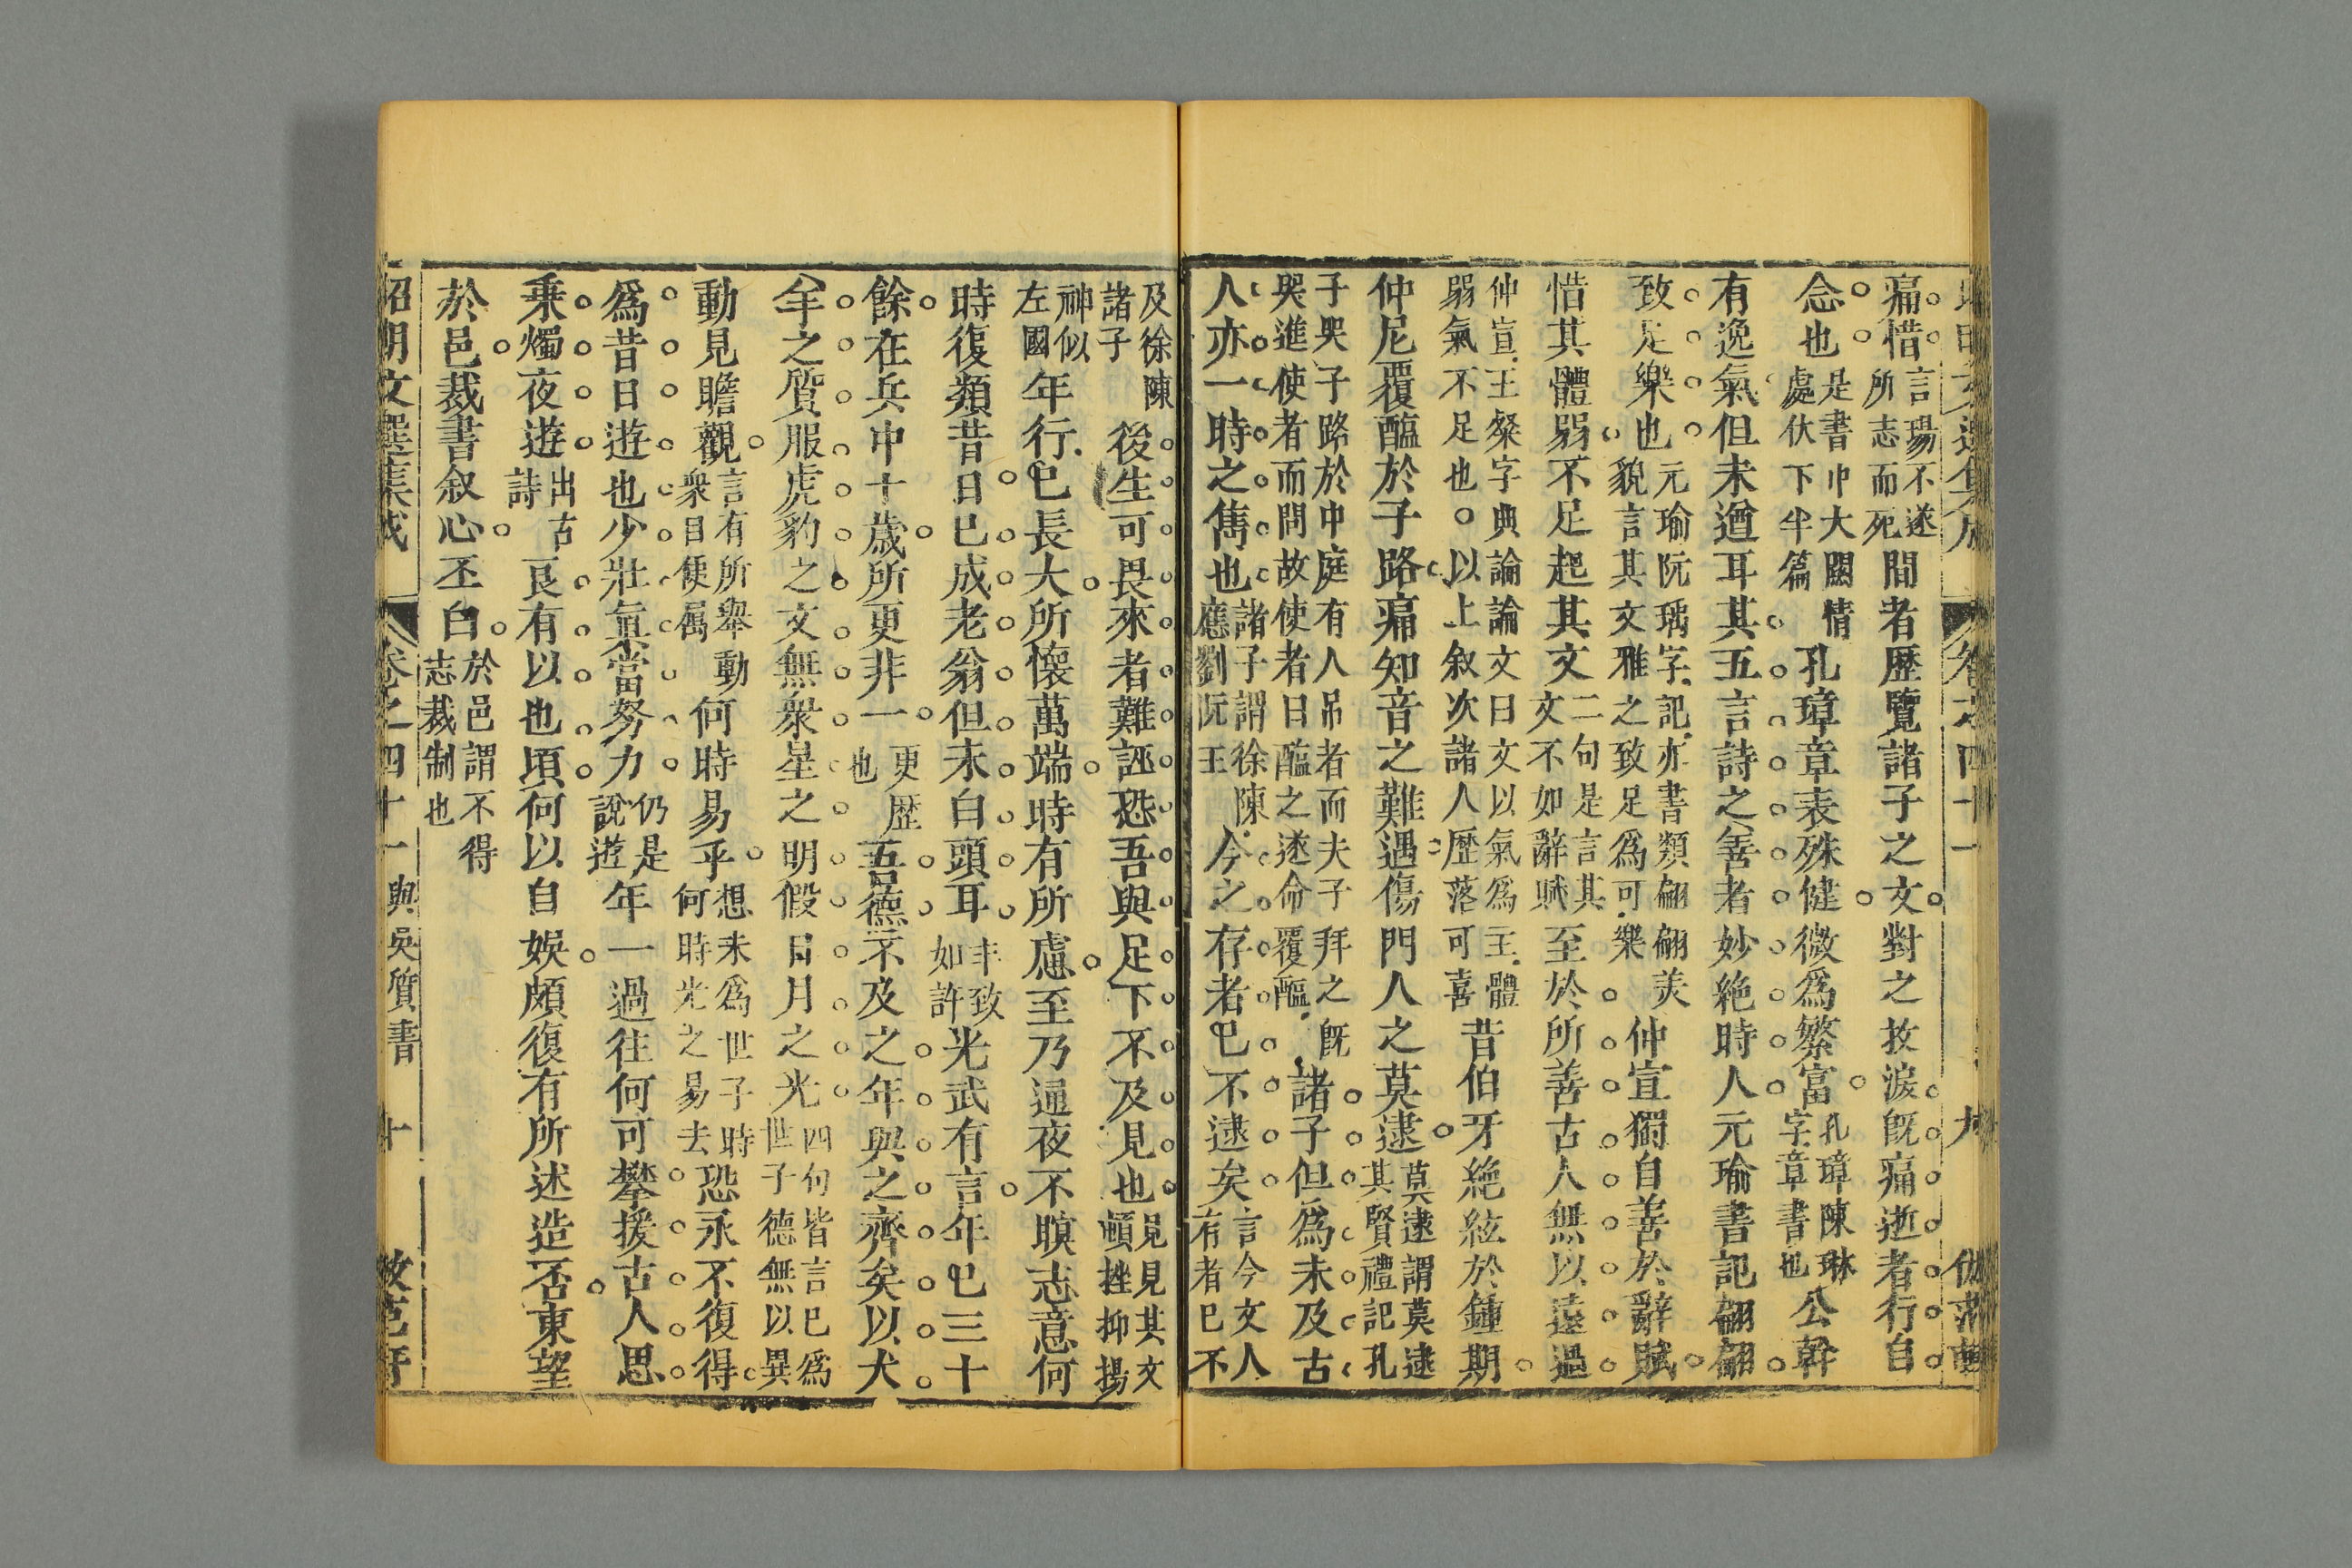 痛惜言瑒不遂所志而死間者歷覽諸子之文對之抆淚旣痛逝者行自
念也是書中大關情處伏下半篇孔璋章表殊健微爲繁富孔璋陳琳字章書也公幹
有逸氣但未遒耳其五言詩之善者妙絶時人元瑜書記翩翩
致足樂也元瑜阮瑀字記亦書類翩翩美貌言其文雅之致足爲可樂仲宣獨自善於辭賦
惜其體弱不足起其文二句是言其文不如辭賦至於所善古人無以遠過
仲宣王粲字典論論文曰文以氣爲主體弱氣不足也以上叙次諸人歷落可喜昔伯牙絶絃於鍾期
仲尼覆醢於子路痛知音之難遇傷門人之莫逮莫逮謂莫逮其賢禮記孔
子哭子路於中庭有人吊者而夫子拜之旣哭進使者而問故使者曰醢之遂命覆醢諸子但爲未及古
人亦一時之雋也諸子謂徐陳應劉阮王今之存者已不逮矣言今文人存者已不
及徐陳諸子後生可畏來者難誣恐吾與足下不及見也見見其文頓挫抑揚
神似左國年行已長大所懷萬端時有所慮至乃通夜不瞑志意何
時復類昔日已成老翁但未白頭耳非致如許光武有言年已三十
餘在兵中十歲所更非一更歷也吾德不及之年與之齊矣以犬
羊之質服虎豹之文無衆星之明假日月之光四句皆言已爲世子德無以異
動見瞻觀言有所舉動衆目使屬何時易乎想未爲世子時何時光之易去恐永不復得
爲昔日遊也少壯眞當努力仍是說遊年一過往何可攀援古人思
秉燭夜遊出古詩良有以也頃何以自娛頗復有所述造否東望
於邑裁書叙心丕白於邑謂不得志裁制也
昭明文選集成 卷之四十一 與吳質書 十